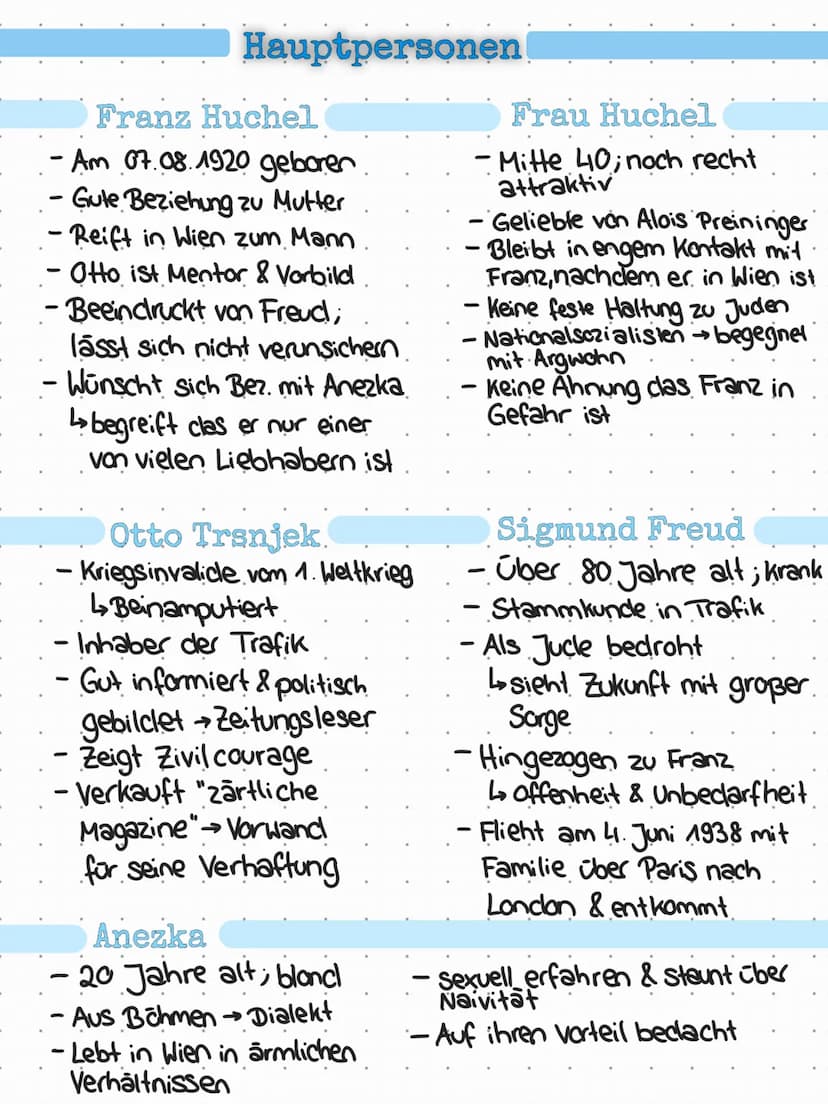 Hauptpersonen
Franz Huchel
- Am 07.08.1920 geboren
- Gute Beziehung zu Mutter
- Reift in Wien zum Mann
- Otto ist Mentor & Vorbild
- Beeindruckt von Freud;
lässt sich nicht verunsichern
- Wünscht sich Bez. mit Anezka
↳ begreift das er nur einer
von vielen Liebhabern ist
Frau Huchel
- Mitte 40; noch recht
attraktiv
- Geliebte von Alois Preininger
- Bleibt in engem Kontakt mit
Franz, nachdem er in Wien ist
- Keine feste Haltung zu Juden
- Nationalsozialisten → begegnet
mit Argwohn
- Keine Ahnung das Franz in
Gefahr ist
Otto Trsnjek
- Kriegsinvalide vom 1. Weltkrieg
↳ Beinamputiert
- Inhaber der Trafik
- Gut informiert & politisch
gebildet → Zeitungsleser
- Zeigt Zivilcourage
- Verkauft "zärtliche
Magazine" → Vorwand
für seine Verhaftung
Sigmund Freud
- Über 80 Jahre alt; krank
- Stammkunde in Trafik
- Als Jude bedroht
↳ sieht Zukunft mit großer
Sorge
- Hingezogen zu Franz
↳ Offenheit & Unbedarfheit
- Flieht am 4. Juni 1938 mit
Familie über Paris nach
London & entkommt
Anezka
- 20 Jahre alt; blond
- Aus Böhmen → Dialekt
- Lebt in Wien in ärmlichen
Verhältnissen
- sexuell erfahren & staunt über
Naivität
- Auf ihren Vorteil bedacht